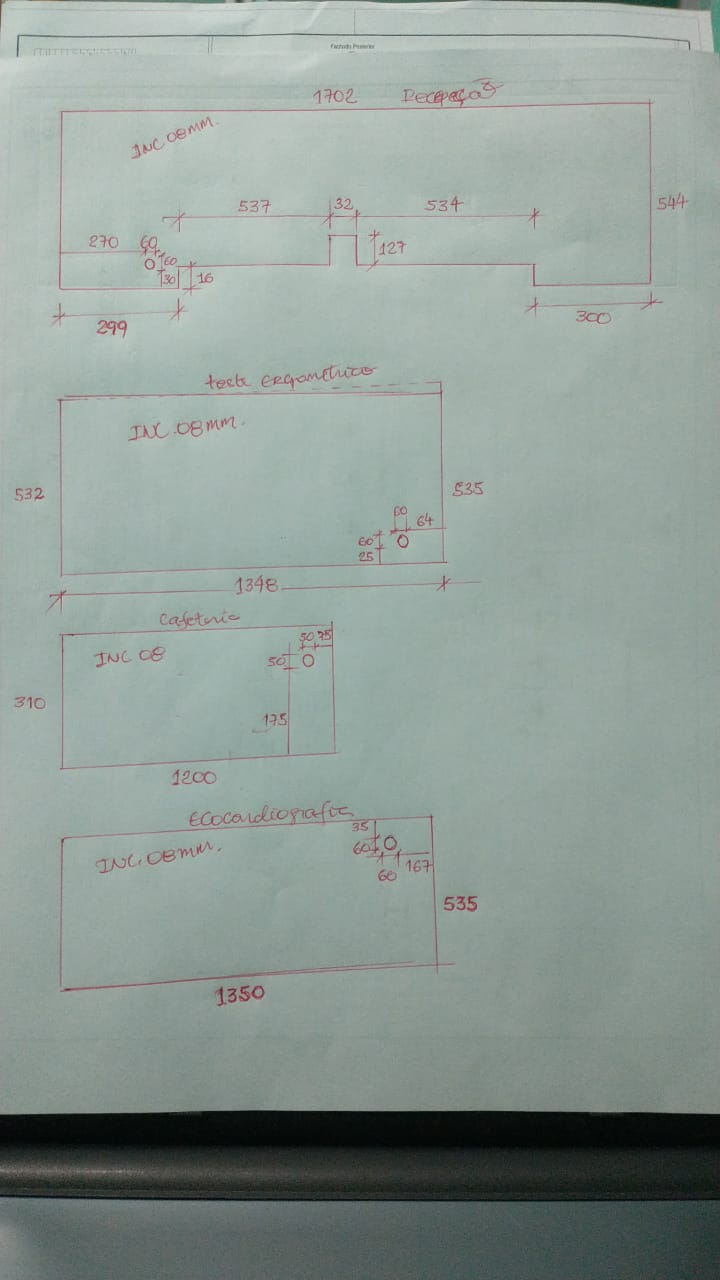 Fachada Posterior
1702 Recepção
INC 08MM.
537 32 534
544
270 60
127
60
30 16
299
300
teste ergométrico
INC. 08MM.
532
535
60 64
60
25
1348
Cafeteria
50 75
INC 08
50
310
175
1200
Ecocardiografia
35
INC. 08MM.
60
167
60
535
1350